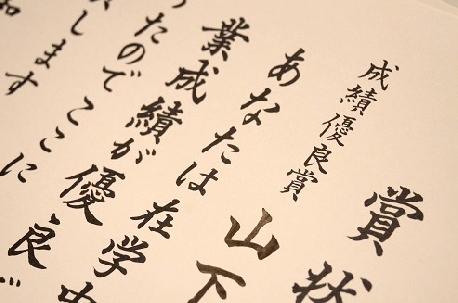 賞状
成績優良賞
山下
あなたは在学中
業成績が優良で
ったのでここに
します